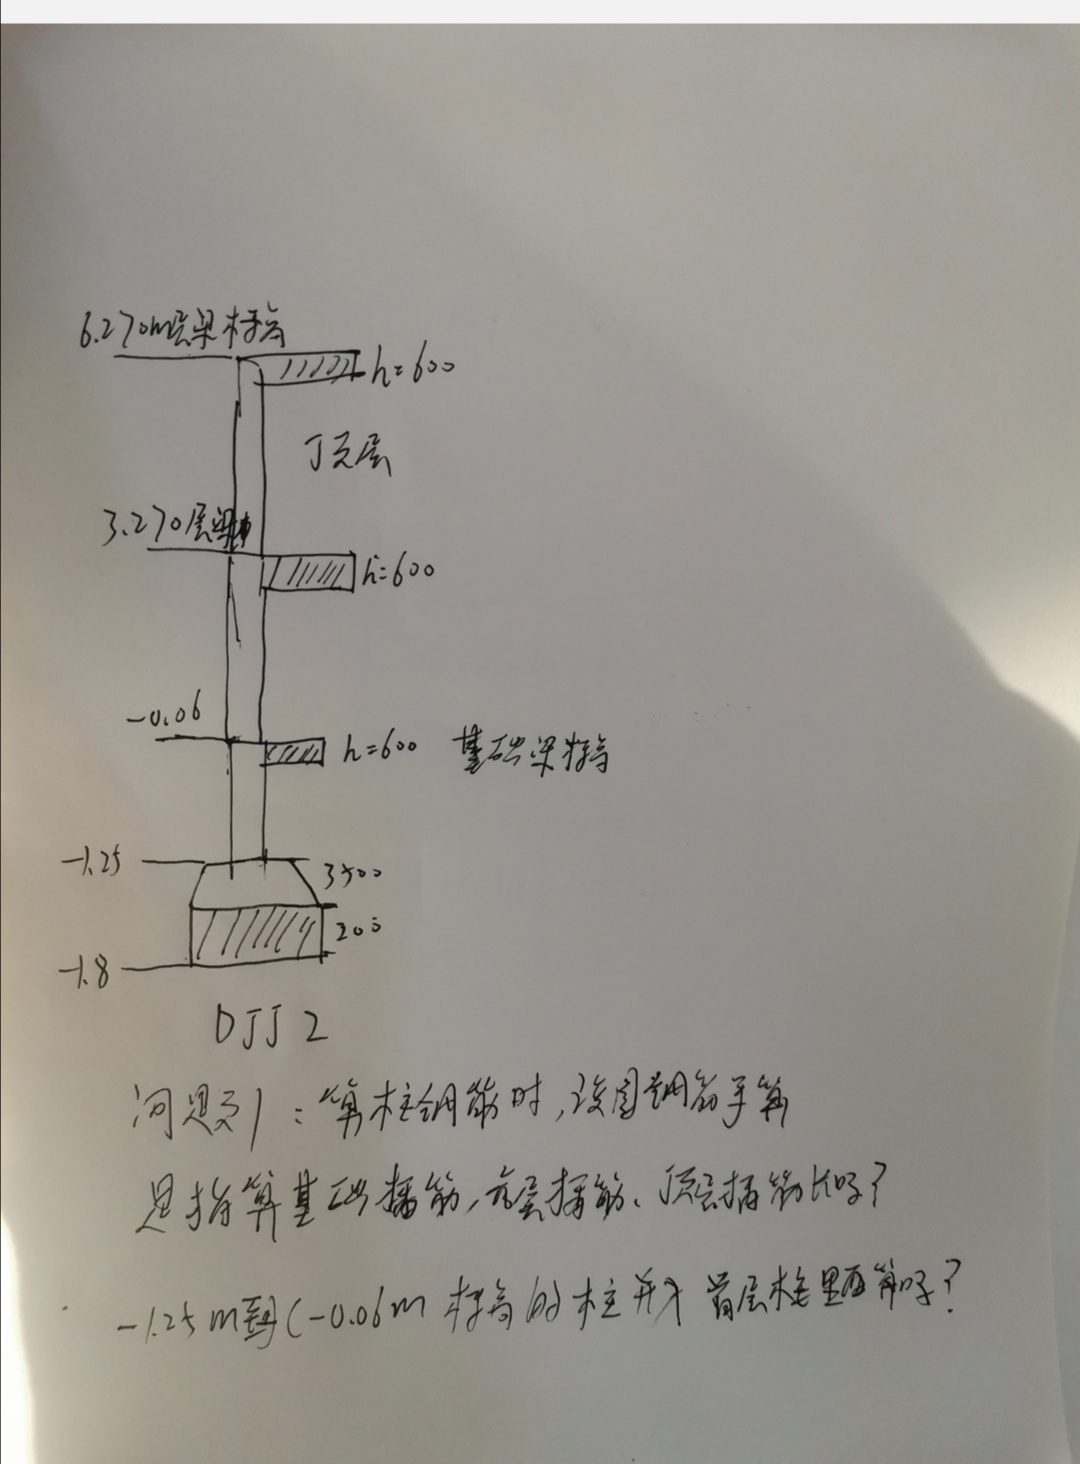 6.270m层梁标高
h=600
顶层
3.270层梁
h=600
-0.06
h=600 基础梁标高
-1.25
3500
200
-1.8
DJJ2
问题1:算柱钢筋时,该图钢筋手算
是指算基础插筋,首层插筋、顶层插筋长吗?
-1.25m到(-0.06m 标高的柱并入首层柱里面算吗?